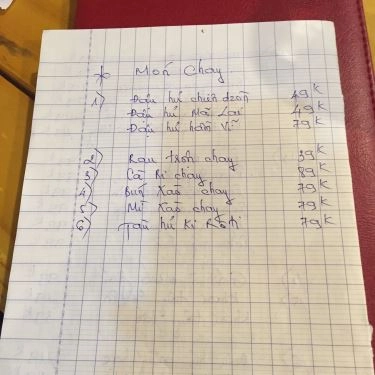 * Món Chay
1) Đậu hủ chiên dzòn 49K
Đậu hủ Mã Lai 49K
Đậu hủ hầm Vĩ 79K
2) Rau trộn chay 39K
3) Cà Ri chay 89K
4) Bún Xào chay 79K
5) Mì Xào chay 79K
6) Tàu hủ Ki 79K